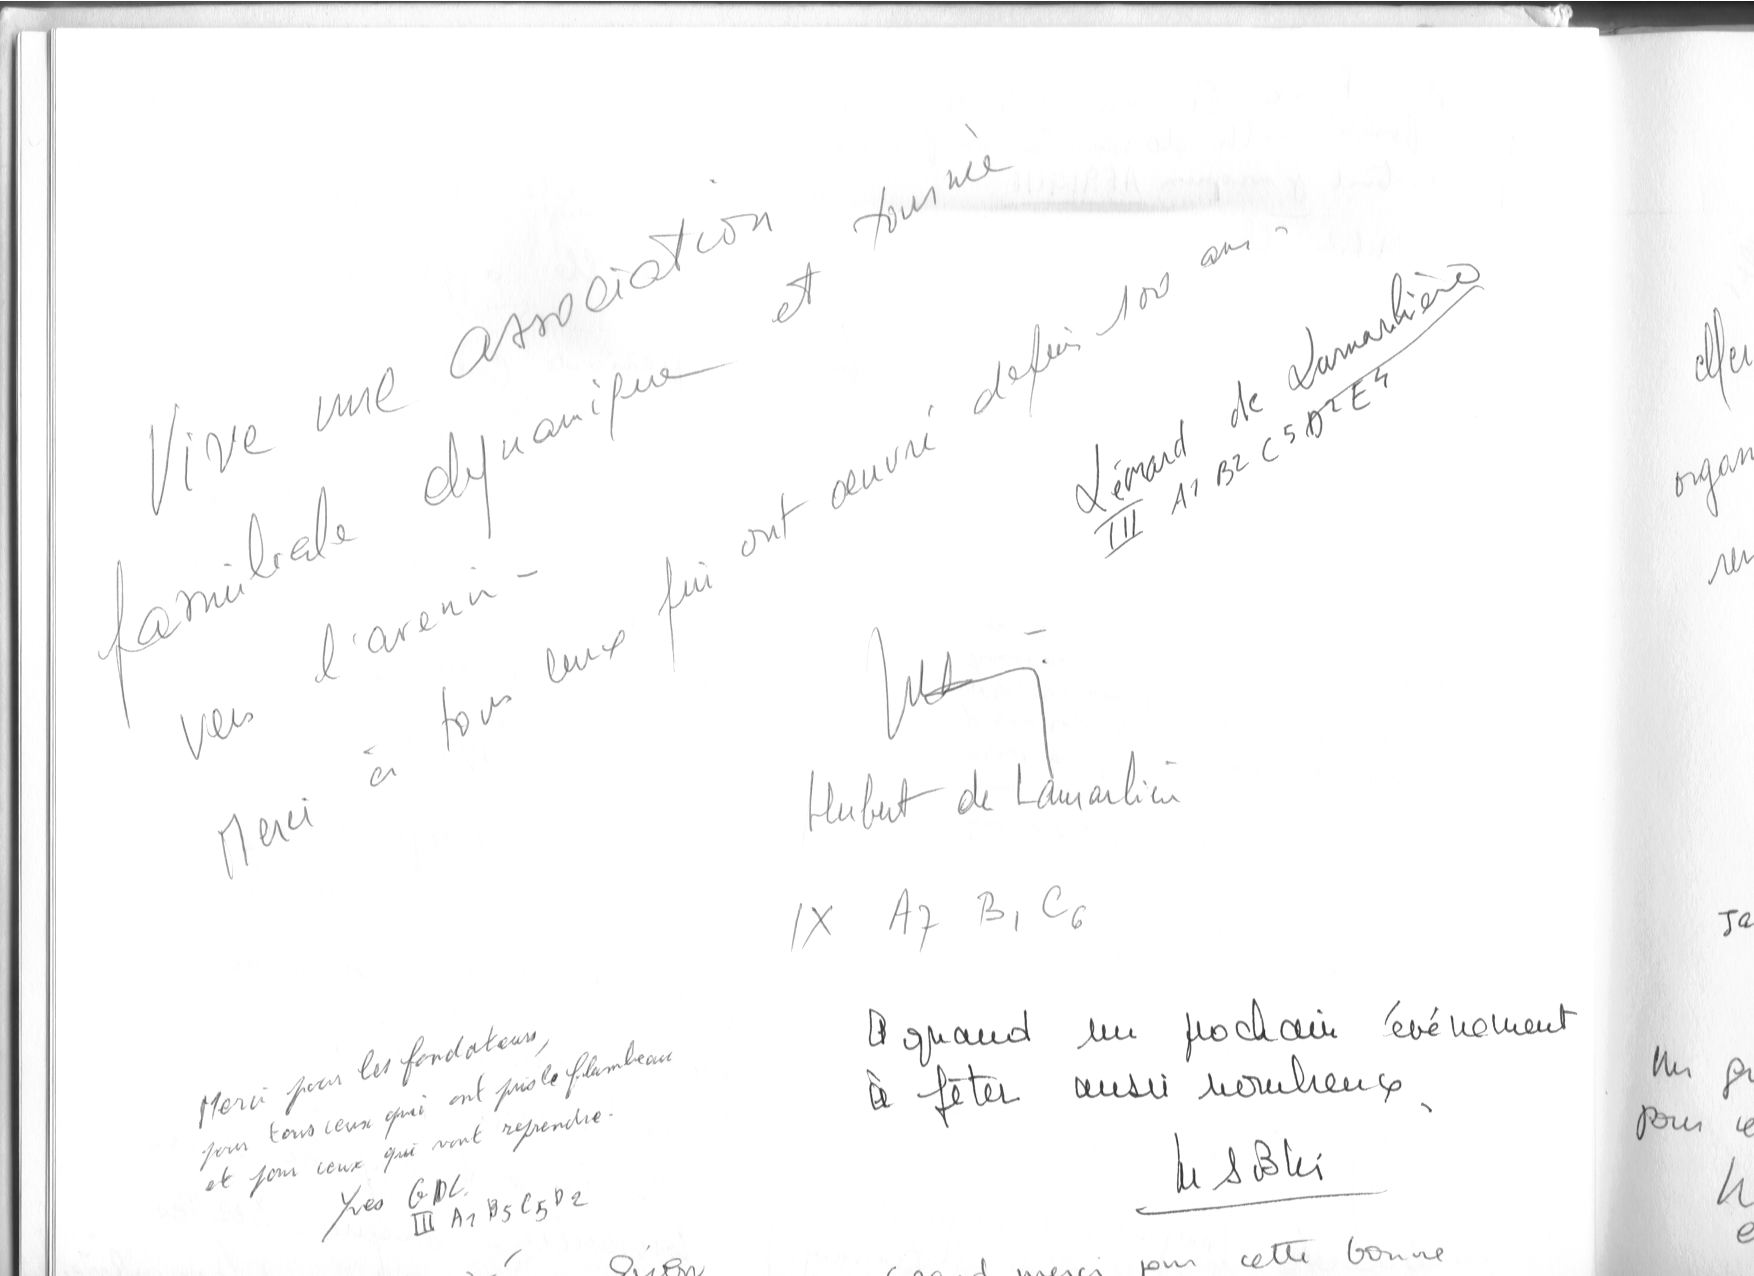 Vive une association
familiale dynamique et tournée
vers l'avenir -
Merci à tous ceux qui ont œuvré depuis 100 ans.
de Lamarlière
III A1 B2 C5 D2 E4
Hubert de Lamarlière
IX A7 B1 C6
Merci pour les fondateurs,
pour tous ceux qui ont pris le flambeau
et pour ceux qui vont reprendre.
Yves GDL
III A1 B5 C5 D2
A quand un prochain événement
à fêter aussi nombreux
merci pour cette bonne
organ
pour ce